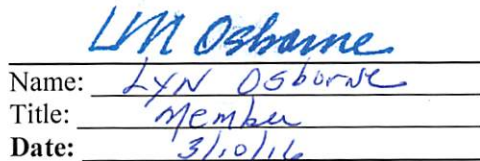 LM Osborne
Name: Lyn Osborne
Title: Member
Date: 3/10/16